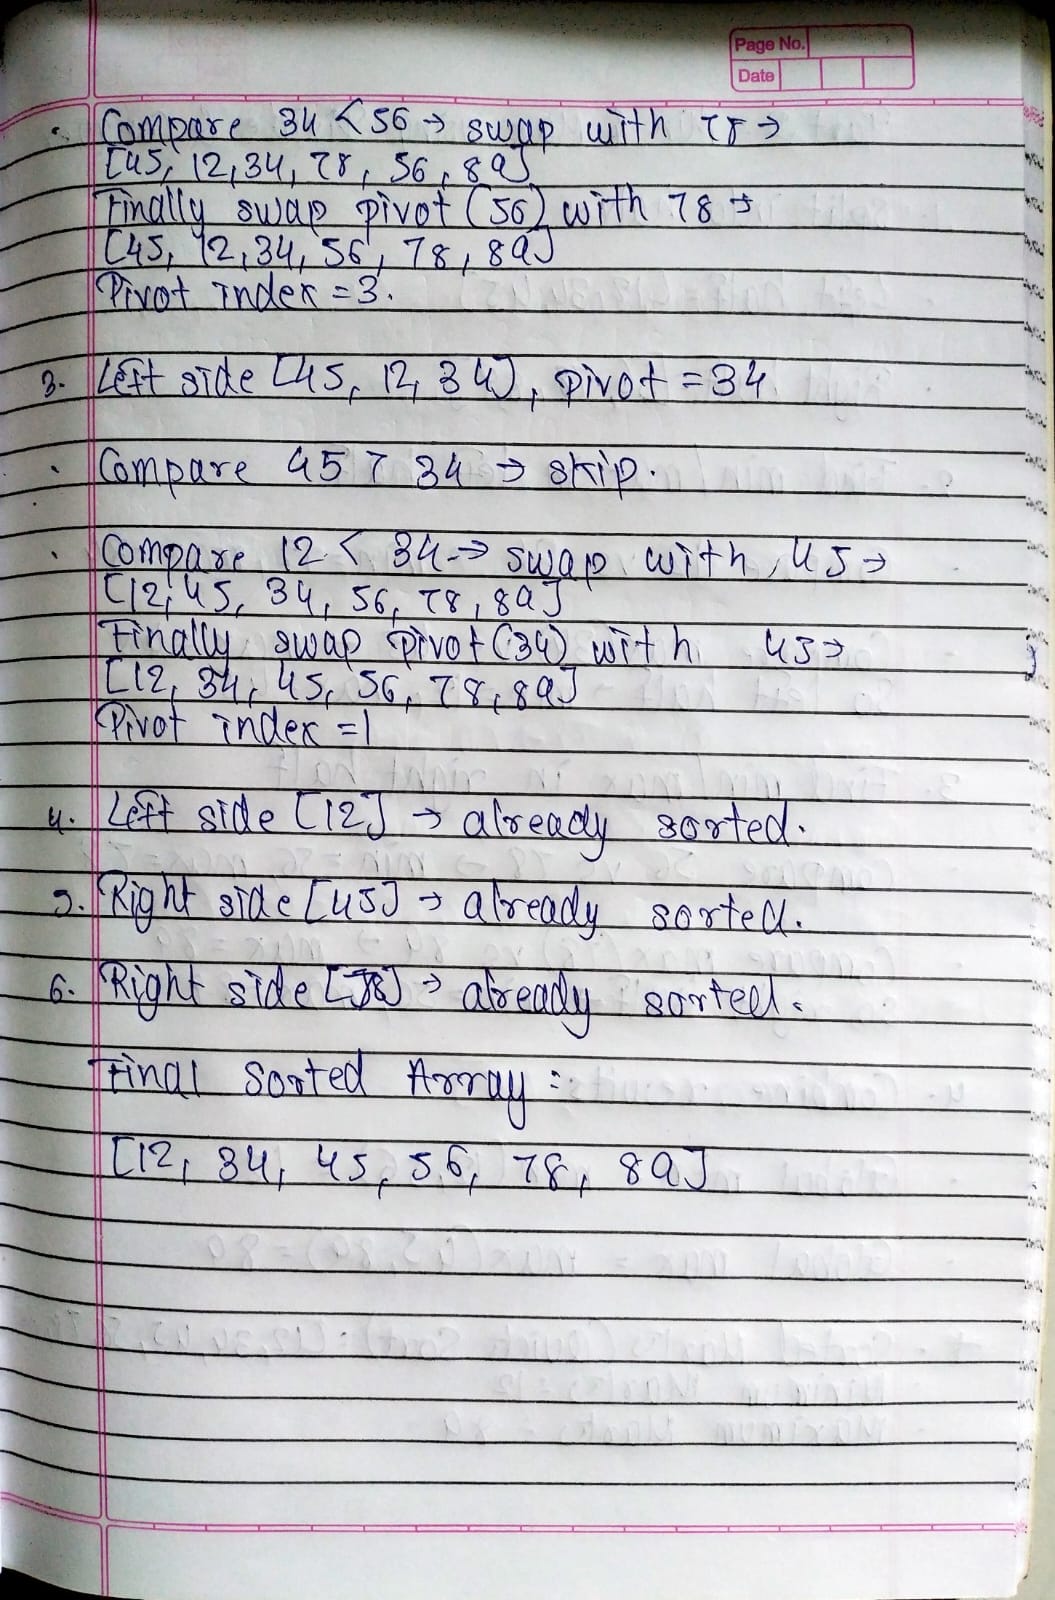 Page No.
Date
• Compare 34 < 56 → swap with 78 →
[45, 12, 34, 78, 56, 89]
Finally swap pivot (56) with 78 →
[45, 12, 34, 56, 78, 89]
Pivot index = 3.
3. Left side [45, 12, 34], pivot = 34
• Compare 45 > 34 → skip.
• Compare 12 < 34 → swap with 45 →
[12, 45, 34, 56, 78, 89]
Finally swap pivot (34) with 45 →
[12, 34, 45, 56, 78, 89]
Pivot index = 1
4. Left side [12] → already sorted.
5. Right side [45] → already sorted.
6. Right side [78] → already sorted.
Final Sorted Array :
[12, 34, 45, 56, 78, 89]